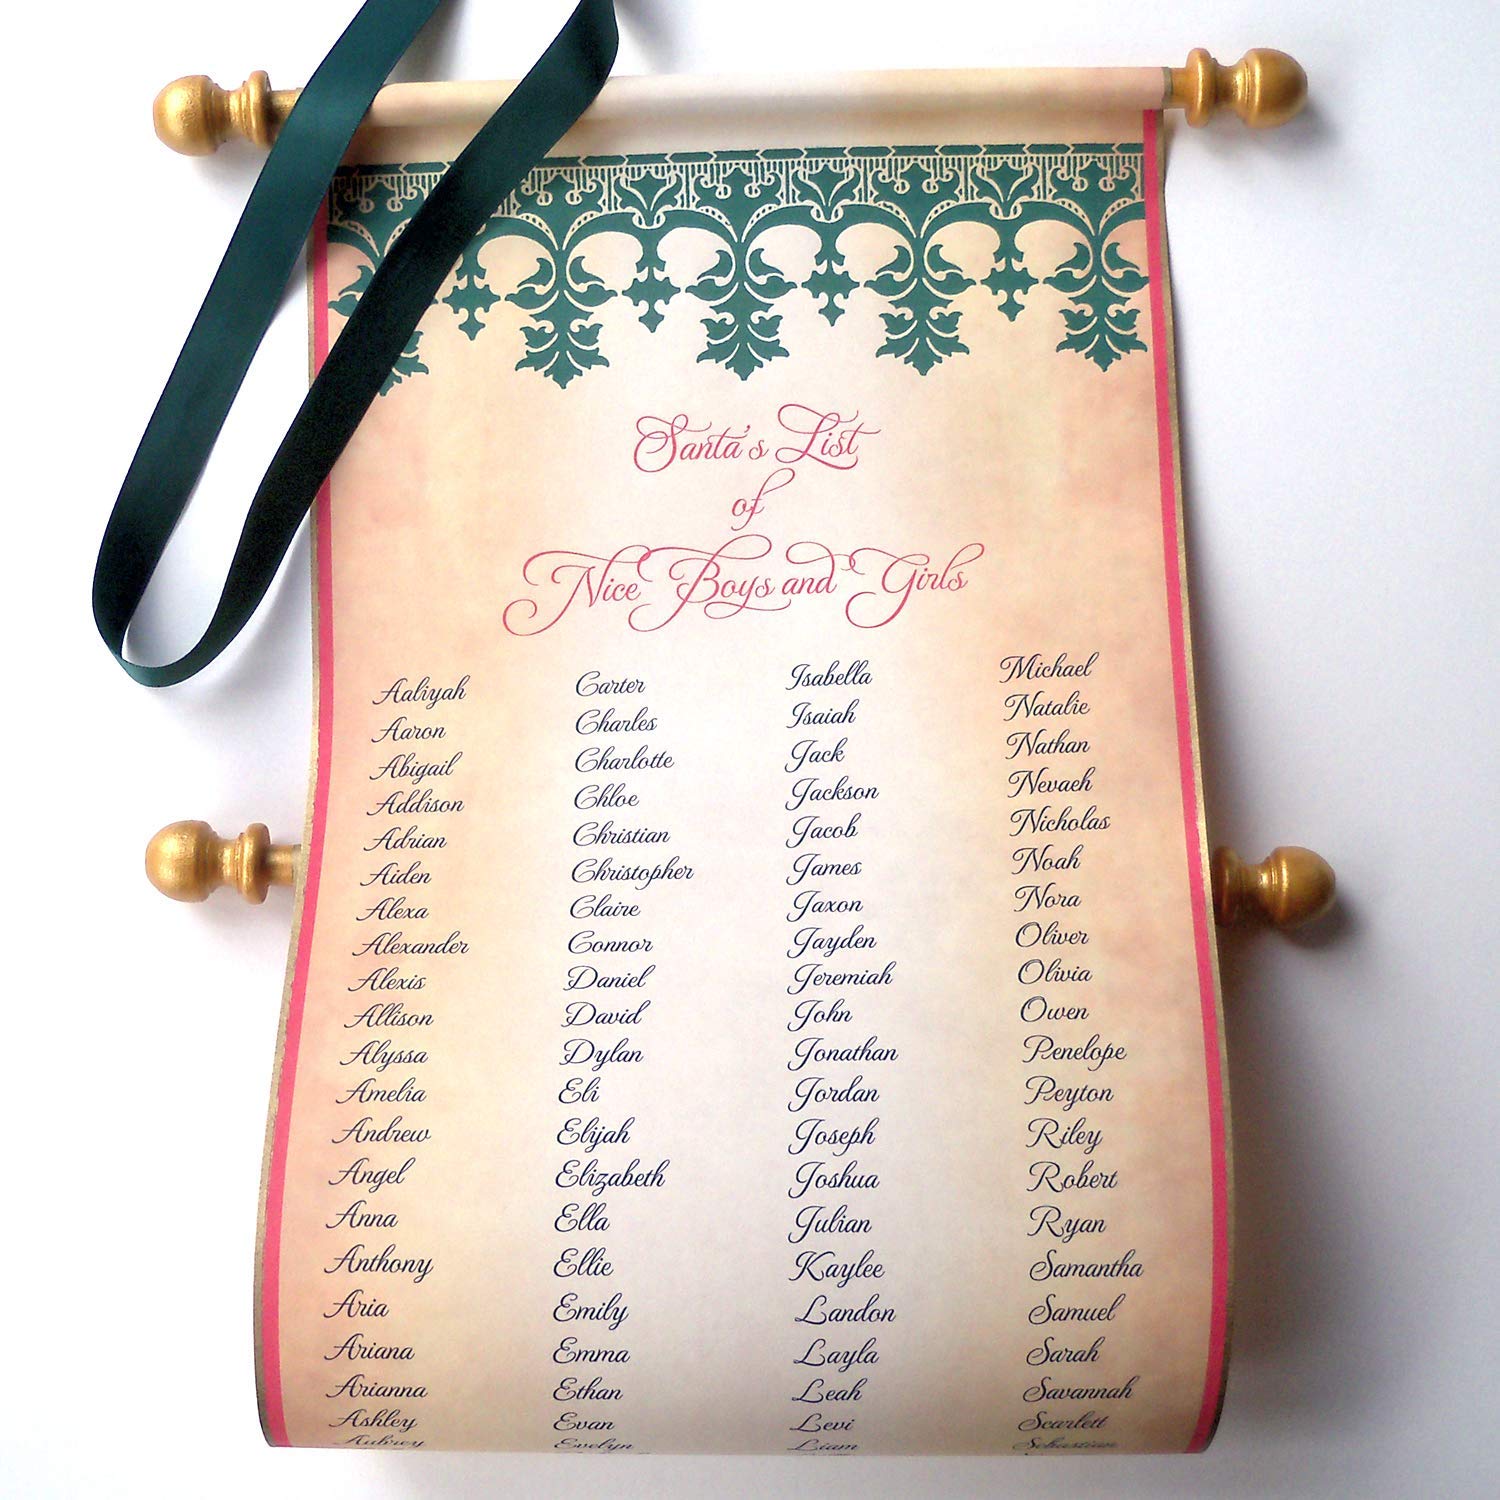 Santa's List
of
Nice Boys and Girls
Aaliyah
Aaron
Abigail
Addison
Adrian
Aiden
Alexa
Alexander
Alexis
Allison
Alyssa
Amelia
Andrew
Angel
Anna
Anthony
Aria
Ariana
Arianna
Ashley
Aubrey
Carter
Charles
Charlotte
Chloe
Christian
Christopher
Claire
Connor
Daniel
David
Dylan
Eli
Elijah
Elizabeth
Ella
Ellie
Emily
Emma
Ethan
Evan
Evelyn
Isabella
Isaiah
Jack
Jackson
Jacob
James
Jaxon
Jayden
Jeremiah
John
Jonathan
Jordan
Joseph
Joshua
Julian
Kaylee
Landon
Layla
Leah
Levi
Liam
Michael
Natalie
Nathan
Nevaeh
Nicholas
Noah
Nora
Oliver
Olivia
Owen
Penelope
Peyton
Riley
Robert
Ryan
Samantha
Samuel
Sarah
Savannah
Scarlett
Sebastian